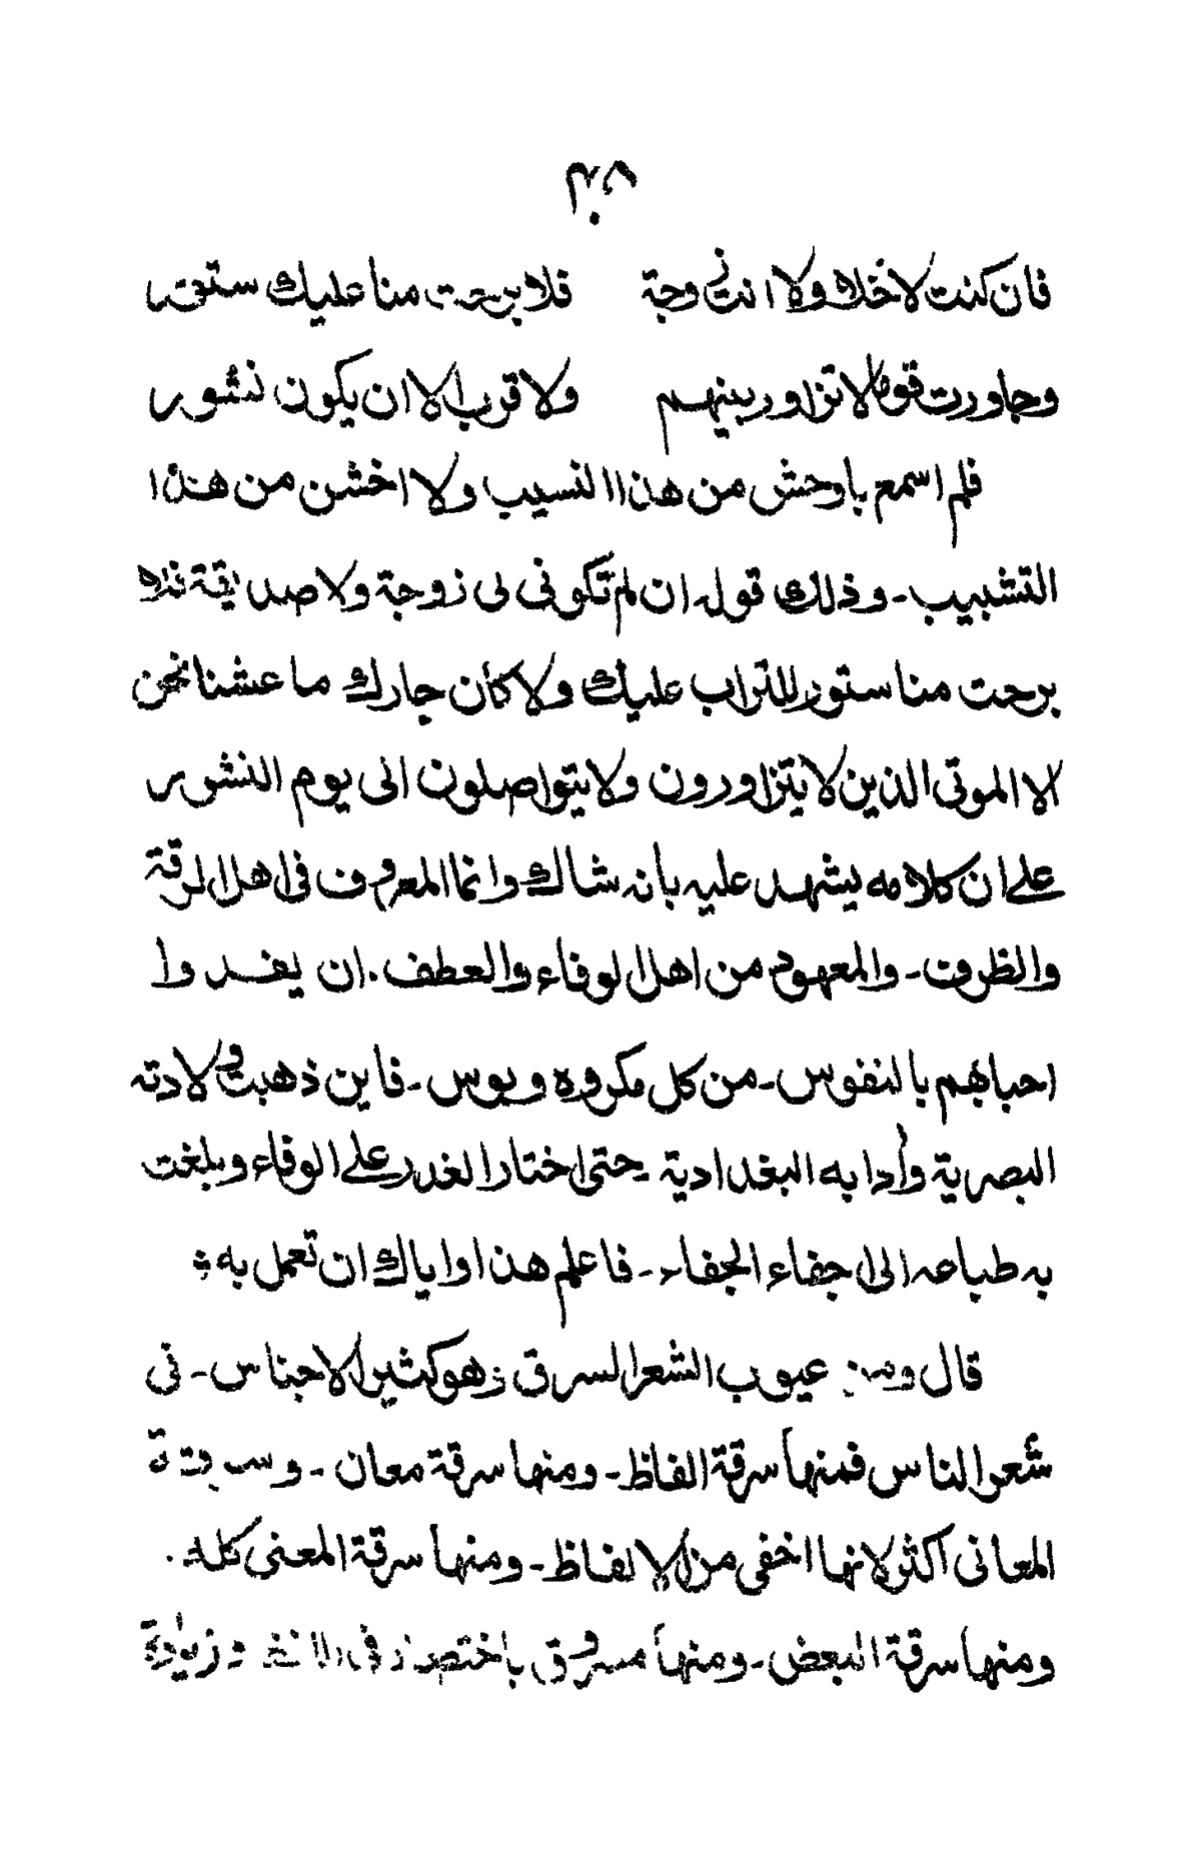 فان كنت لا خلا ولا انت زوجة فلا برحت منا عليك ستور
وجاورت قوما لا تزاور بينهم ولا قرب الا ان يكون نشور
فلم اسمع باوحش من هذا النسيب ولا اخشن من هذا
التشبيب - وذلك قوله ان لم تكونى لى زوجة ولا صديقة فلا
برحت منا ستور للتراب عليك ولا كان جارك ما عشنا نحن
الا الموتى الذين لا يتزاورون ولا يتواصلون الى يوم النشور
على ان كلامه يشهد عليه بأنه شاك وانما المعروف فى اهل الرقة
والظرف - والمعهود من اهل الوفاء والعطف . ان يفدوا
احبابهم بالنفوس - من كل مكروه وبوس - فاين ذهبت ولادته
البصرية وأدابه البغدادية - حتى اختار الغدر على الوفاء وبلغت
به طباعه الى اجفاء الجفاء - فاعلم هذا واياك ان تعمل به
قال ومن عيوب الشعر السرق وهو كثير الاجناس - فى
شعر الناس فمنها سرقة الفاظ - ومنها سرقة معان - وسرقة
المعانى اكثر لانها اخفى من الالفاظ - ومنها سرقة المعنى كله .
ومنها سرقة البعض - ومنها مسروق باختصار فى اللفظ وزيادة